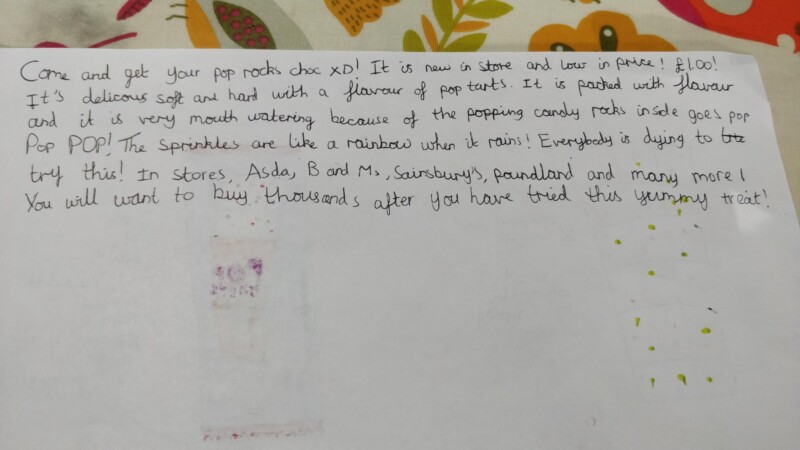 Come and get your pop rocks choc XD! It is new in store and low in price! £1.00!
It's delicous soft and hard with a flavour of pop tarts. It is packed with flavour
and it is very mouth watering because of the popping candy rocks inside goes pop
Pop POP! The sprinkles are like a rainbow when it rains! Everybody is dying to
try this! In stores, Asda, B and Ms, Sainsbury's, poundland and many more!
You will want to buy thousands after you have tried this yummy treat!